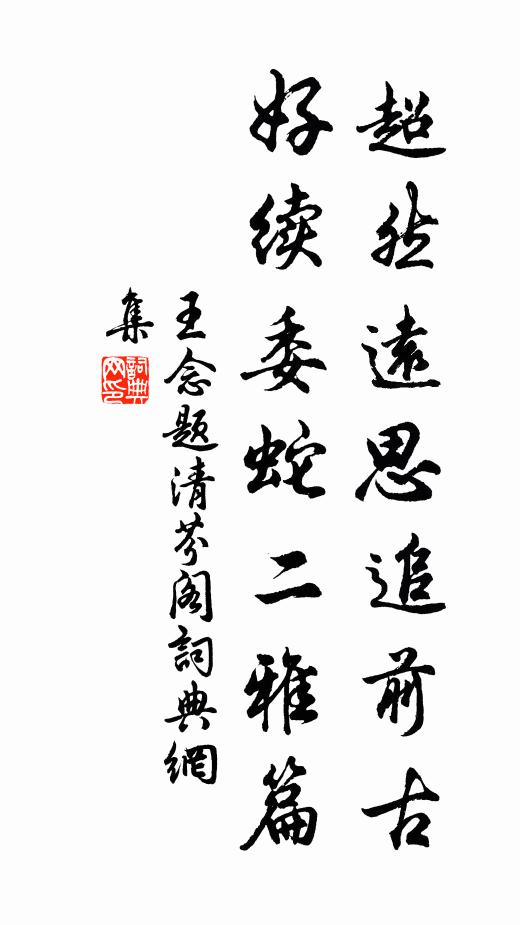 超然遠思追前古
好续委蛇二雅篇
王念题清芬阁詞典網
集
詞典网印